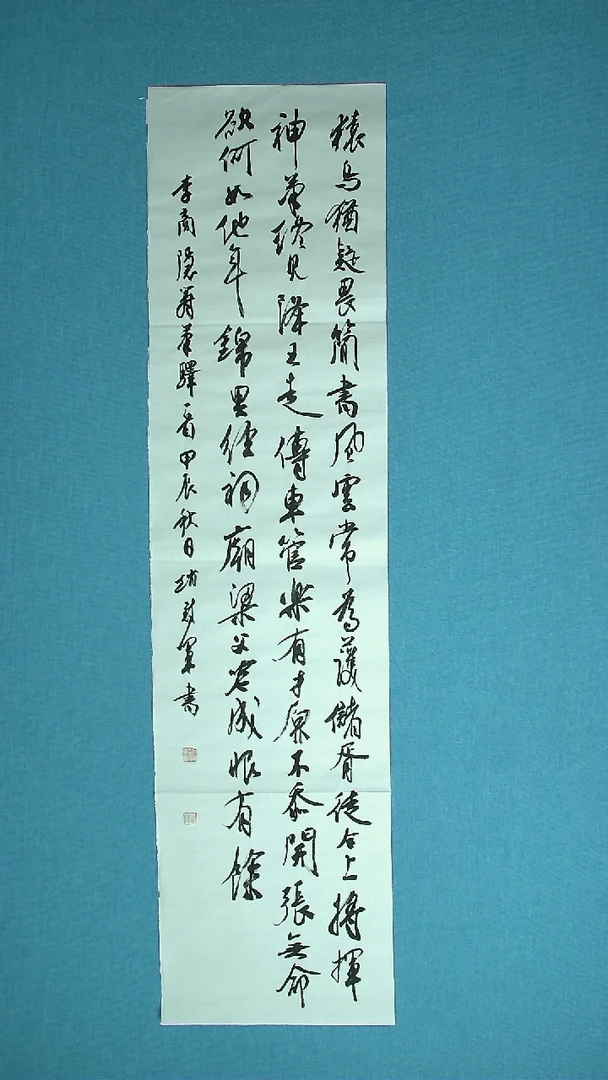 猿鳥猶疑畏簡書風雲常為護儲胥徒令上將揮
神筆終見降王走傳車管樂有才原不忝關張無命
欲何如他年錦里經祠廟梁父吟成恨有餘
李商隱籌筆驛一首甲辰秋日軍書